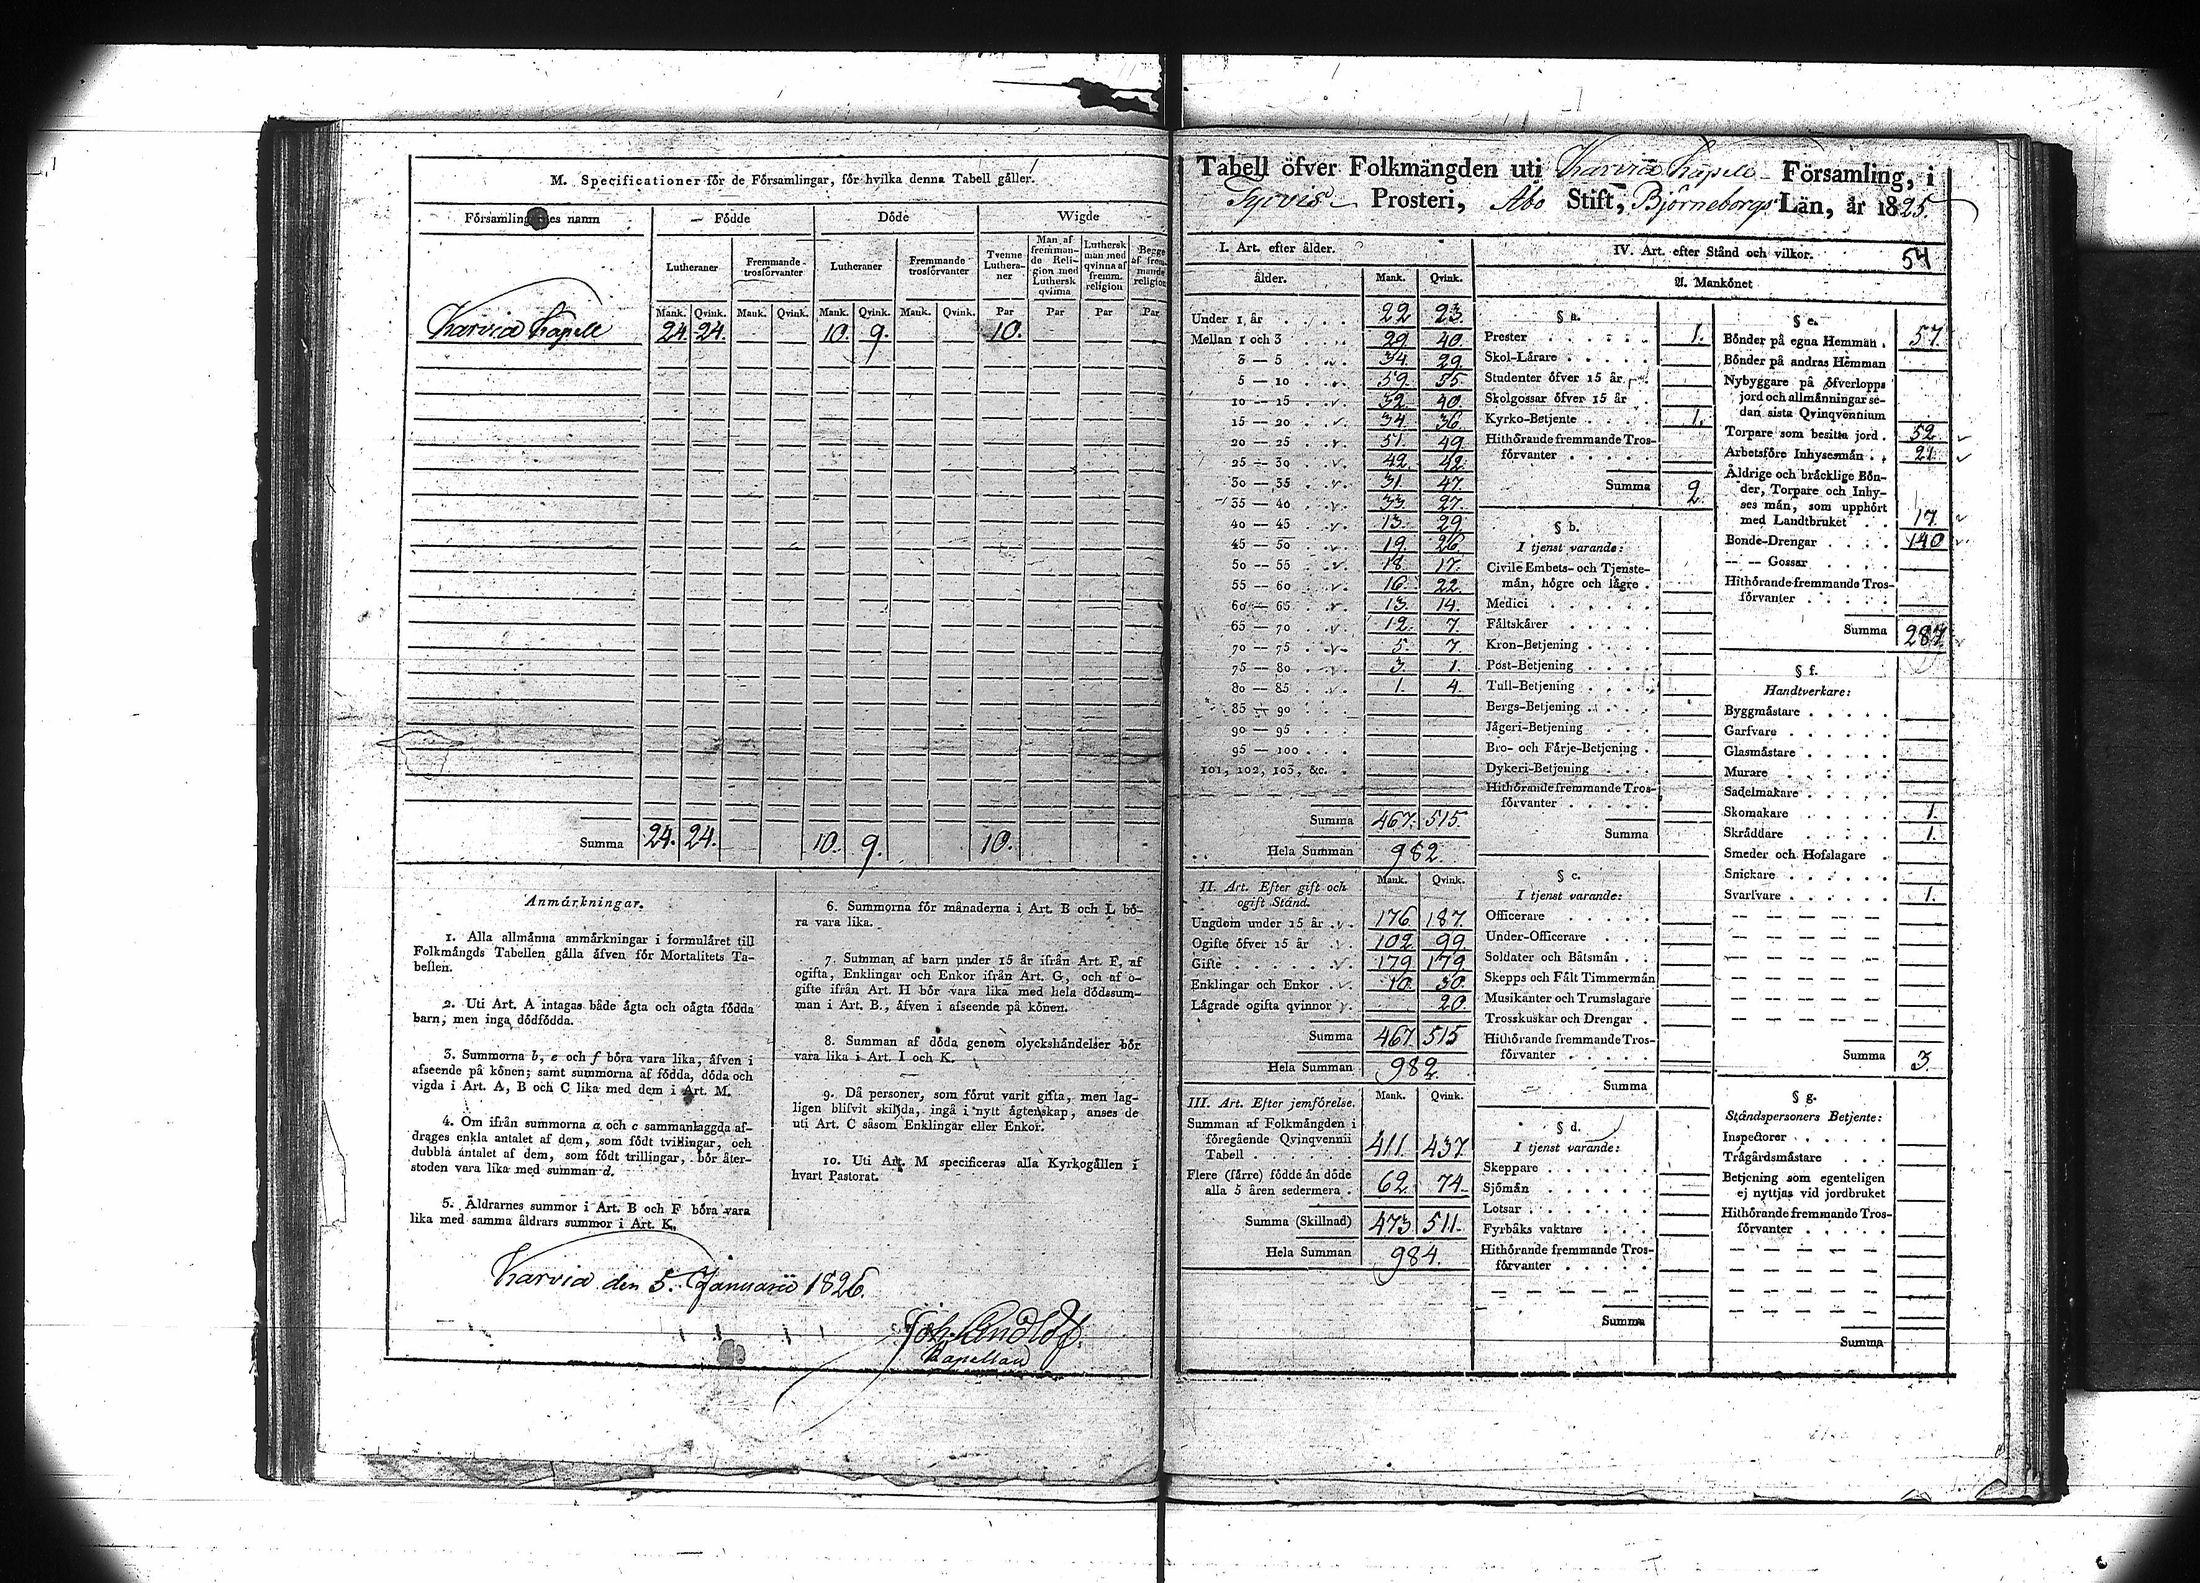 M. Specificationer för de Församlingar, för hvilka denna Tabell gäller.
Församlingarnes namn Födde Döde Wigde
Lutheraner Fremmande trosförvanter Lutheraner Fremmande trosförvanter Tvenne Lutheraner Man af fremmande Religion med Luthersk qvinna Luthersk man med qvinna af fremm. religion Begge af fremmande religion
Mank. Qvink. Mank. Qvink. Mank. Qvink. Mank. Qvink. Par Par Par Par
Karvia Kapell 24. 24. 10. 9. 10.
Summa 24. 24. 10. 9. 10.
Anmärkningar.
1. Alla allmänna anmärkningar i formuläret till
Folkmängds Tabellen gälla äfven för Mortalitets Ta-
bellen.
2. Uti Art. A intagas både ägta och oägta födda
barn, men inga dödfödda.
3. Summorna b, e och f böra vara lika, äfven i
afseende på könen; samt summorna af födda, döda och
vigda i Art. A, B och C lika med dem i Art. M.
4. Om ifrån summorna a och c sammanlaggda af-
drages enkla antalet af dem, som födt tvillingar, och
dubbla antalet af dem, som födt trillingar, bör åter-
stoden vara lika med summan d.
5. Åldrarnes summor i Art. B och F böra vara
lika med samma åldrars summor i Art. K.
6. Summorna för månaderna i Art. B och L bö-
ra vara lika.
7. Summan af barn under 15 år ifrån Art. F, af
ogifta, Enklingar och Enkor ifrån Art. G, och af o-
gifte ifrån Art. H bör vara lika med hela dödssum-
man i Art. B., äfven i afseende på könen.
8. Summan af döda genom olyckshändelser bör
vara lika i Art. I och K.
9. Då personer, som förut varit gifta, men lag-
ligen blifvit skiljda, ingå i nytt ägtenskap, anses de
uti Art. C såsom Enklingar eller Enkor.
10. Uti Art. M specificeras alla Kyrkogällen i
hvart Pastorat.
Karvia den 5. Januarii 1826.
Joh. Sandlöf
Kapellan
Tabell öfver Folkmängden uti Karvia Kapell Församling, i
Tyrvis Prosteri, Åbo Stift, Björneborgs Län, år 1825.
54
I. Art. efter ålder.
ålder. Mank. Qvink.
Under 1 år 22 23.
Mellan 1 och 3 29 40.
3 — 5 34 29.
5 — 10 59. 55.
10 — 15 32. 40.
15 — 20 34 36.
20 — 25 51. 49.
25 — 30 42. 42.
30 — 35 31. 47.
35 — 40 33. 27.
40 — 45 13. 29.
45 — 50 19. 26.
50 — 55 18. 17.
55 — 60 16. 22.
60 — 65 13. 14.
65 — 70 12. 7.
70 — 75 5. 7.
75 — 80 3. 1.
80 — 85 1. 4.
85 — 90
90 — 95
95 — 100
101, 102, 103, &c.
Summa 467. 515.
Hela Summan 982.
II. Art. Efter gift och
ogift Stånd. Mank. Qvink.
Ungdom under 15 år 176 187.
Ogifte öfver 15 år 102. 99.
Gifte 179 179.
Enklingar och Enkor 10. 30.
Lägrade ogifta qvinnor 20.
Summa 467. 515
Hela Summan 982.
III. Art. Efter jemförelse. Mank. Qvink.
Summan af Folkmängden i
föregående Qvinqvennii
Tabell 411. 437.
Flere (färre) födde än döde
alla 5 åren sedermera 62. 74.
Summa (Skillnad) 473. 511.
Hela Summan 984.
IV. Art. efter Stånd och vilkor.
A. Mankönet
§ a.
Prester 1.
Skol-Lärare
Studenter öfver 15 år
Skolgossar öfver 15 år
Kyrko-Betjente 1.
Hithörande fremmande Tros-
förvanter
Summa 2
§ b.
I tjenst varande:
Civile Embets- och Tjenste-
män, högre och lägre
Medici
Fältskärer
Kron-Betjening
Post-Betjening
Tull-Betjening
Bergs-Betjening
Jägeri-Betjening
Bro- och Färje-Betjening
Dykeri-Betjening
Hithörande fremmande Tros-
förvanter
Summa
§ c.
I tjenst varande:
Officerare
Under-Officerare
Soldater och Båtsmän
Skepps och Fält Timmermän
Musikanter och Trumslagare
Trosskuskar och Drengar
Hithörande fremmande Tros-
förvanter
Summa
§ d.
I tjenst varande:
Skeppare
Sjömän
Lotsar
Fyrbåks vaktare
Hithörande fremmande Tros-
förvanter
Summa
§ e.
Bönder på egna Hemman 57.
Bönder på andras Hemman
Nybyggare på öfverlopps
jord och allmänningar se-
dan sista Qvinqvennium
Torpare som besitta jord 52
Arbetsföre Inhysesmän 21
Åldrige och bräcklige Bön-
der, Torpare och Inhy-
ses män, som upphört
med Landtbruket 17.
Bonde-Drengar 140
— — Gossar
Hithörande fremmande Tros-
förvanter
Summa 287
§ f.
Handtverkare:
Byggmästare
Garfvare
Glasmästare
Murare
Sadelmakare
Skomakare 1.
Skräddare 1.
Smeder och Hofslagare
Snickare
Svarfvare 1.
Summa 3
§ g.
Ståndspersoners Betjente:
Inspectorer
Trägårdsmästare
Betjening som egenteligen
ej nyttjas vid jordbruket
Hithörande fremmande Tros-
förvanter
Summa